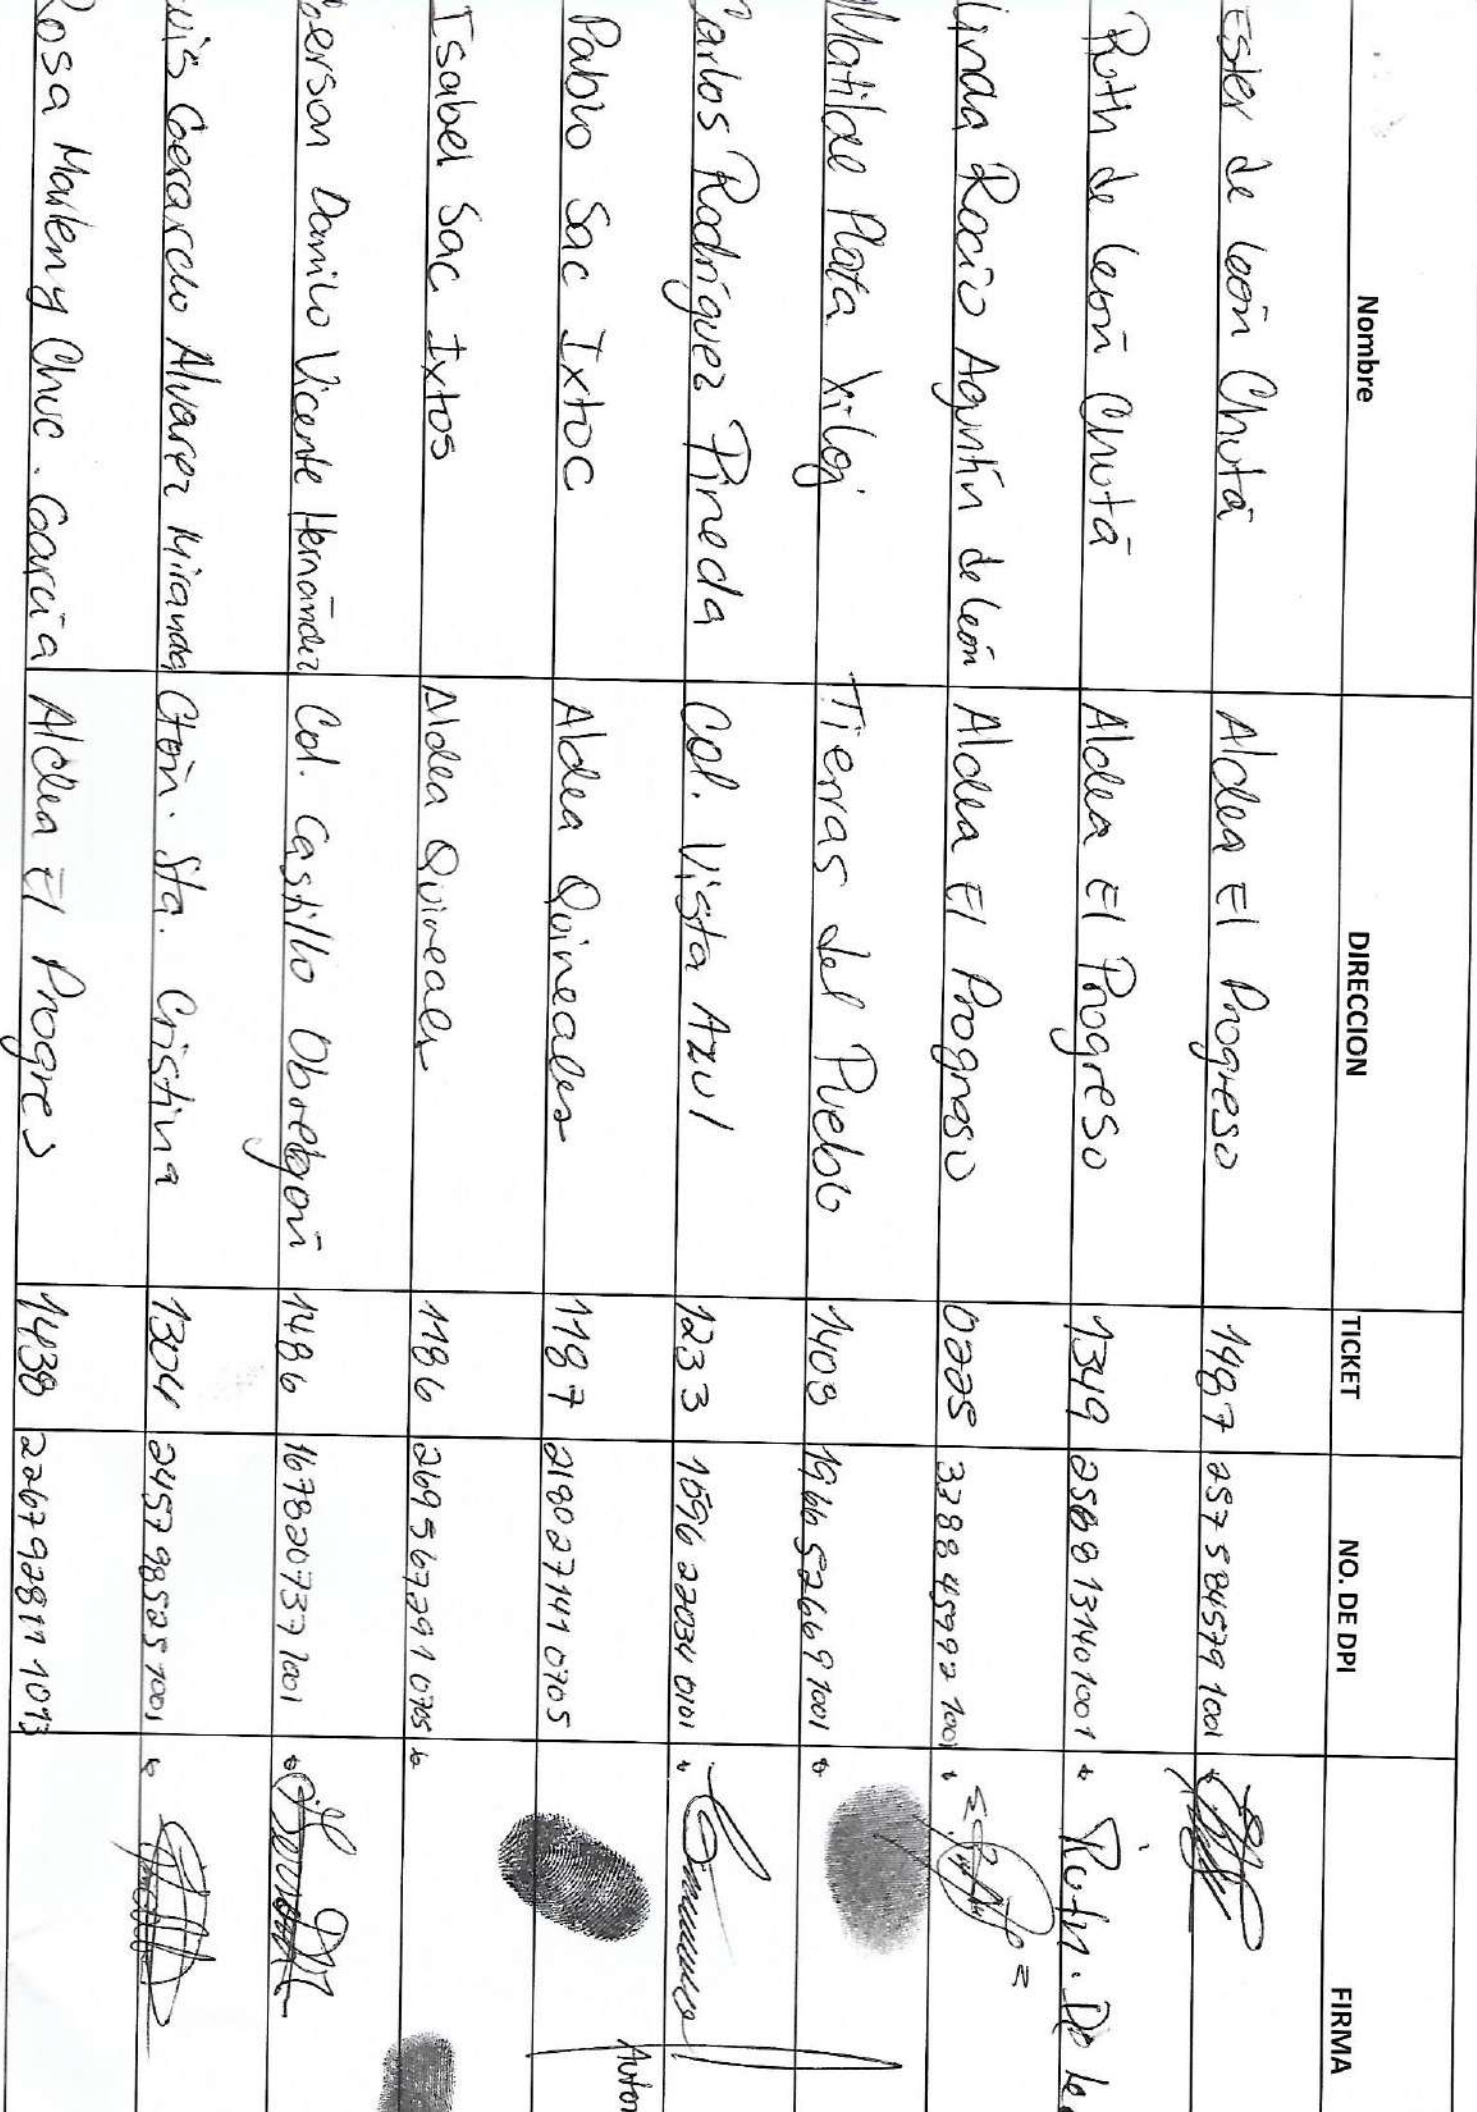 Nombre DIRECCION TICKET NO. DE DPI FIRMA
Ester de león Chutá Aldea El Progreso 1487 2575845791001
Ruth de león Chutá Aldea El Progreso 1349 2588131401001 Ruth. De le
Linda Rocío Aguntín de león Aldea El Progreso 0225 3388459921001
Matilde Plata Xiloj Tierras del Pueblo 1408 1966526691001
Carlos Rodríguez Pineda Col. Vista Azul 1233 1696220340101
Pablo Sac Ixtoc Aldea Quineales 1187 2180271410705
Isabel Sac Ixtos Aldea Quineales 1186 2695672910705
berson Danilo Vicente Hernández Col. Castillo Obregón 1486 1678207371001
uis Gerardo Alvarez Miranda Ctón. Sta. Cristina 1304 2457985251001
Rosa Marleny Chuc. García Aldea El Progres 1438 2267928111013
Autor